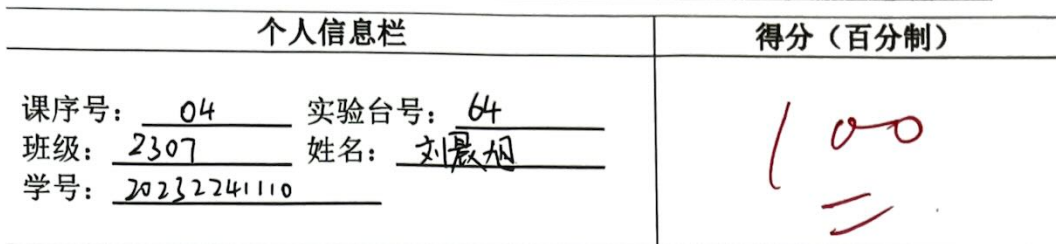 个人信息栏 得分（百分制）
课序号： 04 实验台号： 64
班级： 2307 姓名： 刘晨旭
学号： 20232241110
100